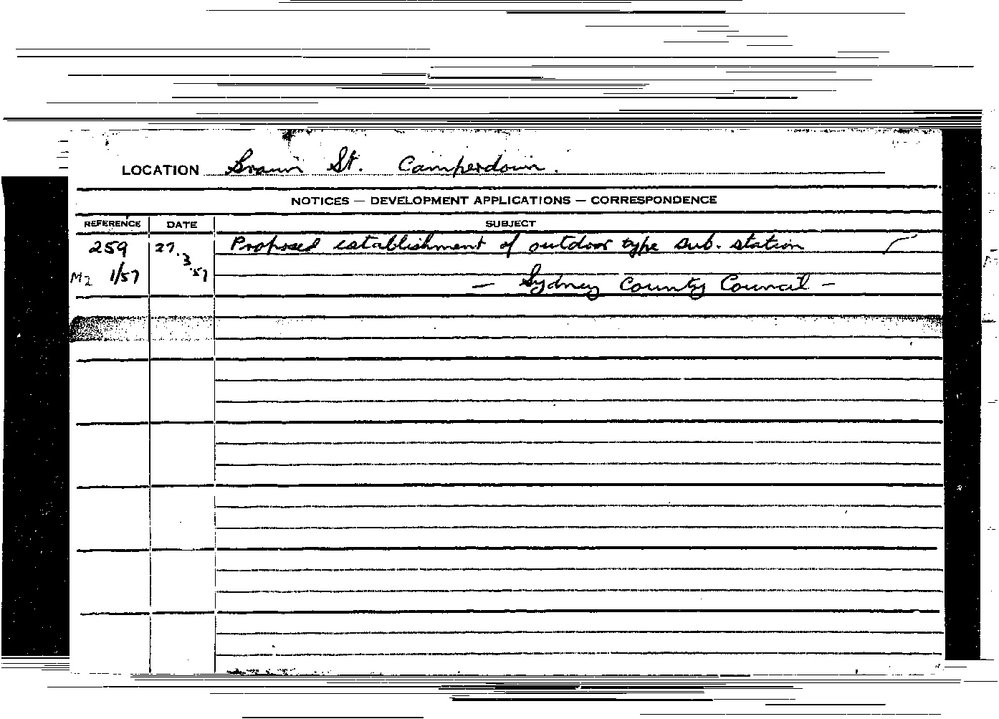 LOCATION St. Camperdown.
NOTICES — DEVELOPMENT APPLICATIONS — CORRESPONDENCE
REFERENCE DATE SUBJECT
259 27.3.57 Proposed establishment of outdoor type sub. station
M2 1/57 — Sydney County Council —